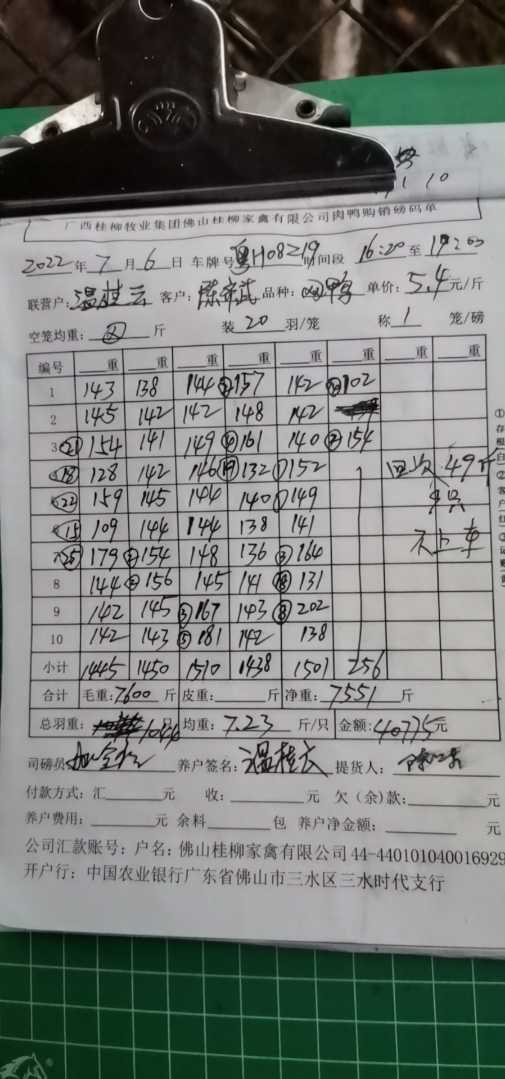 广西桂柳牧业集团佛山桂柳家禽有限公司肉鸭购销磅码单
2022年 7月 6日 车牌号 粤H08219 时间段 16:20 至
联营户: 温桂云 客户: 品种: 肉鸭 单价: 5.4元/斤
空笼均重: 斤 装 20 羽/笼 称 1 笼/磅
编号 重 重 重 重 重 重 重 重
1 143 138 144 157 142 102
2 145 142 142 148 142
3 ㉑154 141 149 161 140 154
⑱128 142 146 ⑲132 152 回次 49斤
㉒159 145 144 140 149
⑮109 144 144 138 141 不上车
㉕179 154 148 136 164
8 144 156 145 141 ⑱131
9 142 145 167 143 202
10 142 143 181 142 138
小计 1445 1450 1510 1438 1501 256
合计 毛重: 7600 斤 皮重: 斤 净重: 7551 斤
总羽重: 1044 均重: 7.23 斤/只 金额: 40775元
司磅员 养户签名: 温桂云 提货人:
付款方式: 汇 元 收: 元 欠(余)款: 元
养户费用: 元 余料 包 养户净金额: 元
公司汇款账号: 户名: 佛山桂柳家禽有限公司 44-440101040016929
开户行: 中国农业银行广东省佛山市三水区三水时代支行